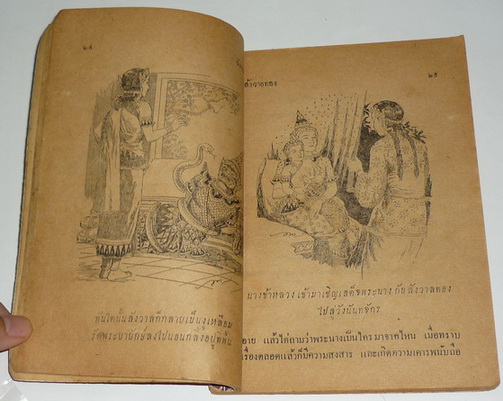 ๒๔
ทันใดนั้นสังวาลก็กลายเป็นงูเหลือม
รัดพระยายักษ์ลงไปนอนกลิ้งอยู่ที่นั้น
๒๕
นางข้าหลวง เข้ามาเชิญเสด็จพระนาง กับ สังวาลทอง
ไปสู่วังนันทจักร
อาย แล้วได้ถามว่าพระนางเป็นใครมาจากไหน เมื่อทราบ
เรื่องตลอดแล้วก็มีความสงสาร และเกิดความเคารพนับถือ